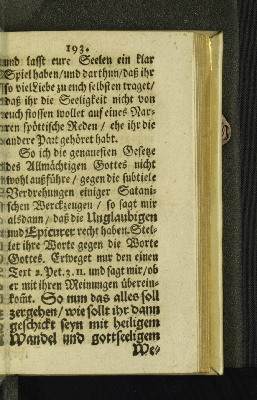 193.
und lasst eure Seelen ein klar
Spiel haben/und darthun/daß ihr
so viel Liebe zu euch selbsten traget/
daß ihr die Seeligkeit nicht von
euch stossen wollet auf eines Nar-
ren spöttische Reden / ehe ihr die
andere Part gehöret habt.
So ich die genauesten Gesetze
des Allmächtigen Gottes nicht
wohl außführe / gegen die subtiele
Verdrehungen einiger Satani-
schen Werckzeugen / so sagt mir
alsdann / daß die Unglaubigen
und Epicurer recht haben. Stel-
let ihre Worte gegen die Worte
Gottes. Erweget nur den einen
Text 2. Pet. 3. 11. und sagt mir/ob
er mit ihren Meinungen überein-
kom̃t. So nun das alles soll
zergehen/ wie sollt ihr dann
geschickt seyn mit heiligem
Wandel und gottseeligem
We-